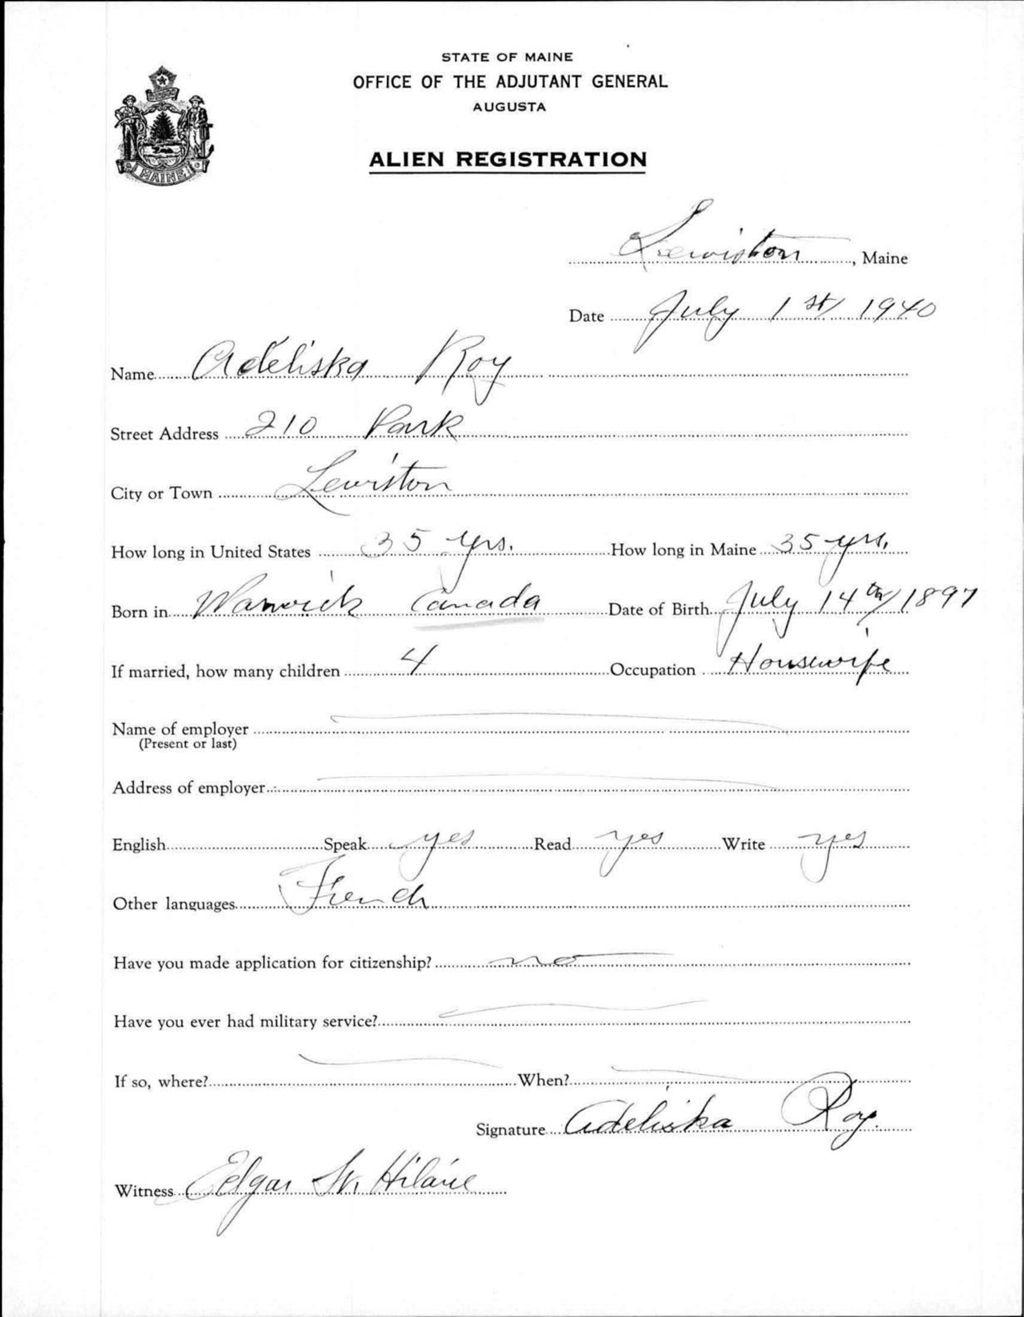 STATE OF MAINE
OFFICE OF THE ADJUTANT GENERAL
AUGUSTA
MAINE
ALIEN REGISTRATION
Lewiston, Maine
Date July 1st, 1940
Name Adeliska Roy
Street Address 210 Park
City or Town Lewiston
How long in United States 35 yrs. How long in Maine 35 yrs.
Born in Warwick Canada Date of Birth July 14th, 1897
If married, how many children 4 Occupation Housewife
Name of employer
(Present or last)
Address of employer
English Speak yes Read yes Write yes
Other languages French
Have you made application for citizenship? no
Have you ever had military service?
If so, where? When?
Signature Adeliska Roy.
Witness Edgar St. Hilaire